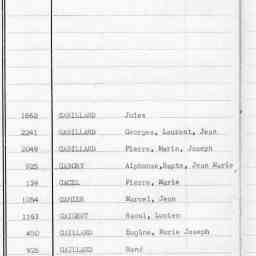 1862 GABILLARD Jules
2241 GABILLARD Georges, Laurent, Jean
2049 GABILLARD Pierre, Marie, Joseph
925 GABORY Alphonse, Bapte, Jean Marie
139 Pierre, Marie
1284 Marcel, Jean
1193 Raoul, Lucien
450 GAILLARD Eugène, Marie Joseph
926 GAILLARD René